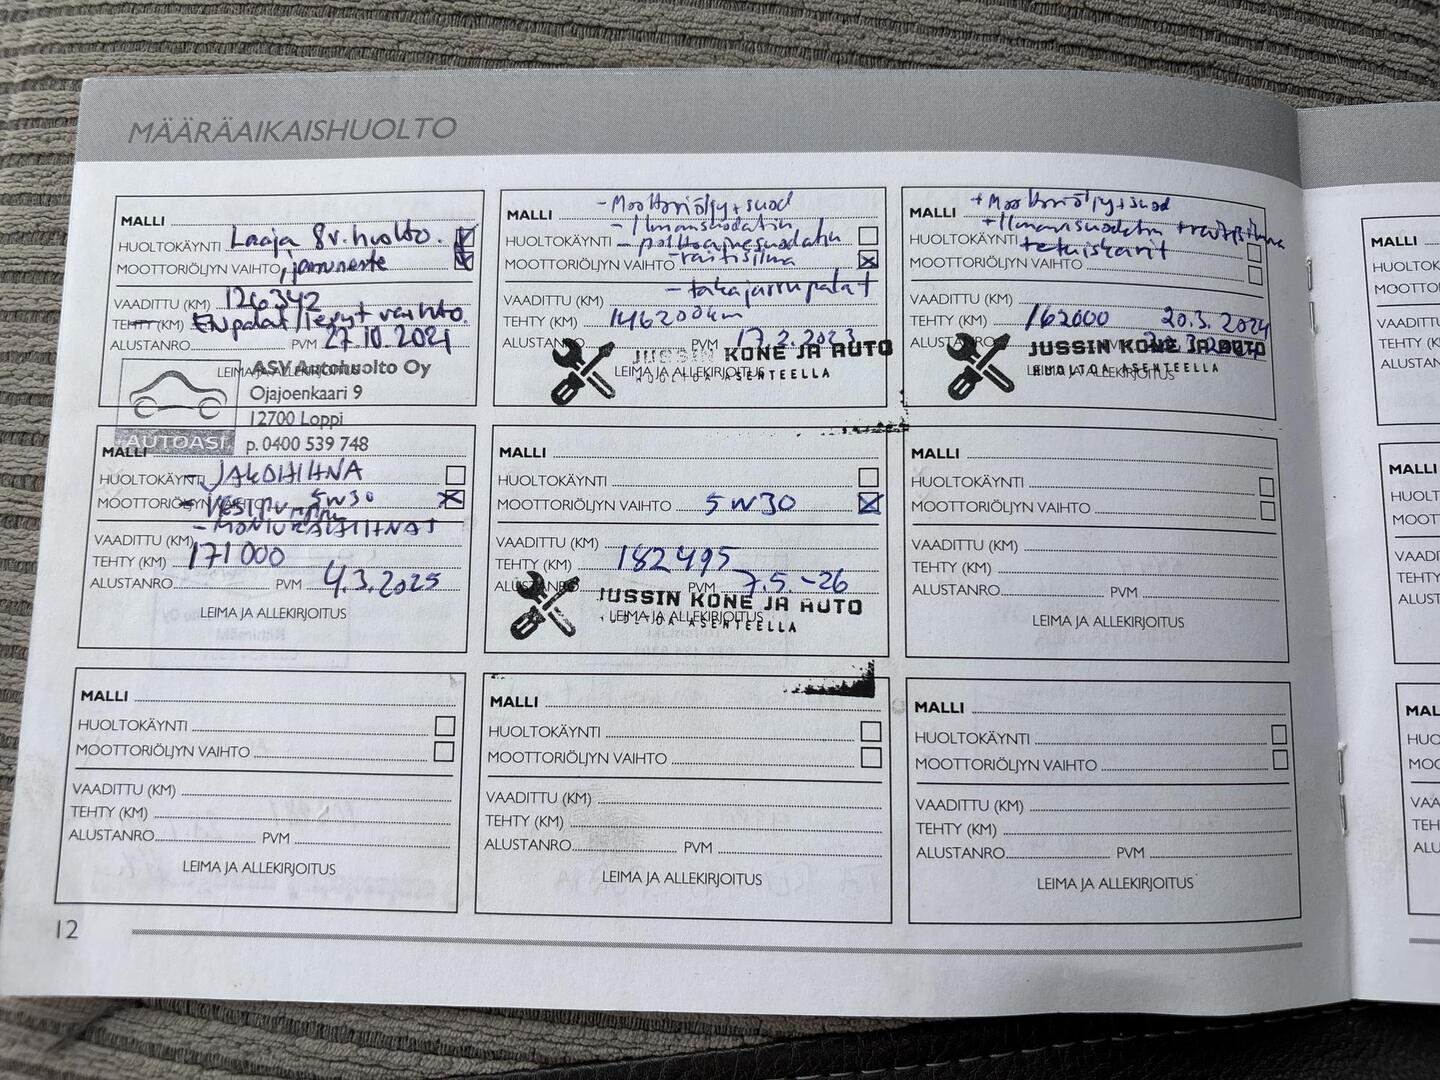 MÄÄRÄAIKAISHUOLTO
MALLI
HUOLTOKÄYNTI Laaja 8v. huolto.
MOOTTORIÖLJYN VAIHTO, jarruneste
VAADITTU (KM) 126342
TEHTY (KM) Etupalat/levyt vaihto.
ALUSTANRO PVM 27.10.2021
LEIMA JA ALLEKIRJOITUS
ASV Autohuolto Oy
Ojajoenkaari 9
12700 Loppi
AUTOASI p. 0400 539 748
MALLI - Moottoriöljy + suod
- Ilmansuodatin
HUOLTOKÄYNTI - polttoainesuodatin
MOOTTORIÖLJYN VAIHTO - raitisilma
- takajarrupalat
VAADITTU (KM)
TEHTY (KM) 146200km
ALUSTANRO PVM 17.2.2023
JUSSIN KONE JA AUTO
LEIMA JA ALLEKIRJOITUS
HUOLTOA ASENTEELLA
MALLI + Moottoriöljy + suod
+ Ilmansuodatin + raitisilma
HUOLTOKÄYNTI
MOOTTORIÖLJYN VAIHTO
VAADITTU (KM)
TEHTY (KM) 162000 20.3.2024
ALUSTANRO PVM
JUSSIN KONE JA AUTO
LEIMA JA ALLEKIRJOITUS
HUOLTOA ASENTEELLA
MALLI
HUOLTOKÄYNTI - JAKOHIHNA
MOOTTORIÖLJYN VAIHTO 5W30
- VESIPUMPPU
- MONIURAHIHNAT
VAADITTU (KM)
TEHTY (KM) 171000
ALUSTANRO PVM 4.3.2025
LEIMA JA ALLEKIRJOITUS
MALLI
HUOLTOKÄYNTI
MOOTTORIÖLJYN VAIHTO 5W30
VAADITTU (KM)
TEHTY (KM) 182495
ALUSTANRO PVM 7.5.-26
JUSSIN KONE JA AUTO
LEIMA JA ALLEKIRJOITUS
HUOLTOA ASENTEELLA
MALLI
HUOLTOKÄYNTI
MOOTTORIÖLJYN VAIHTO
VAADITTU (KM)
TEHTY (KM)
ALUSTANRO PVM
LEIMA JA ALLEKIRJOITUS
MALLI
HUOLTOKÄYNTI
MOOTTORIÖLJYN VAIHTO
VAADITTU (KM)
TEHTY (KM)
ALUSTANRO PVM
LEIMA JA ALLEKIRJOITUS
MALLI
HUOLTOKÄYNTI
MOOTTORIÖLJYN VAIHTO
VAADITTU (KM)
TEHTY (KM)
ALUSTANRO PVM
LEIMA JA ALLEKIRJOITUS
MALLI
HUOLTOKÄYNTI
MOOTTORIÖLJYN VAIHTO
VAADITTU (KM)
TEHTY (KM)
ALUSTANRO PVM
LEIMA JA ALLEKIRJOITUS
12
MALLI
MALLI